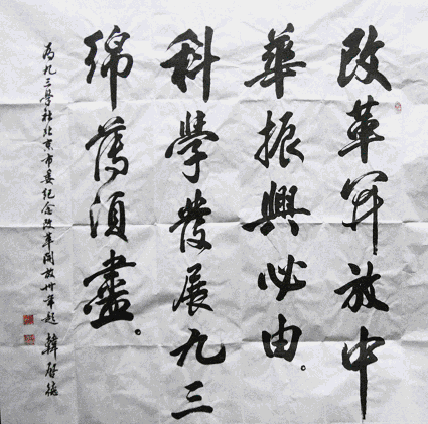 改革開放中
華振興必由。
科學發展九三
綿薄須盡。
為九三學社北京市委紀念改革開放卅年題 韓啟德